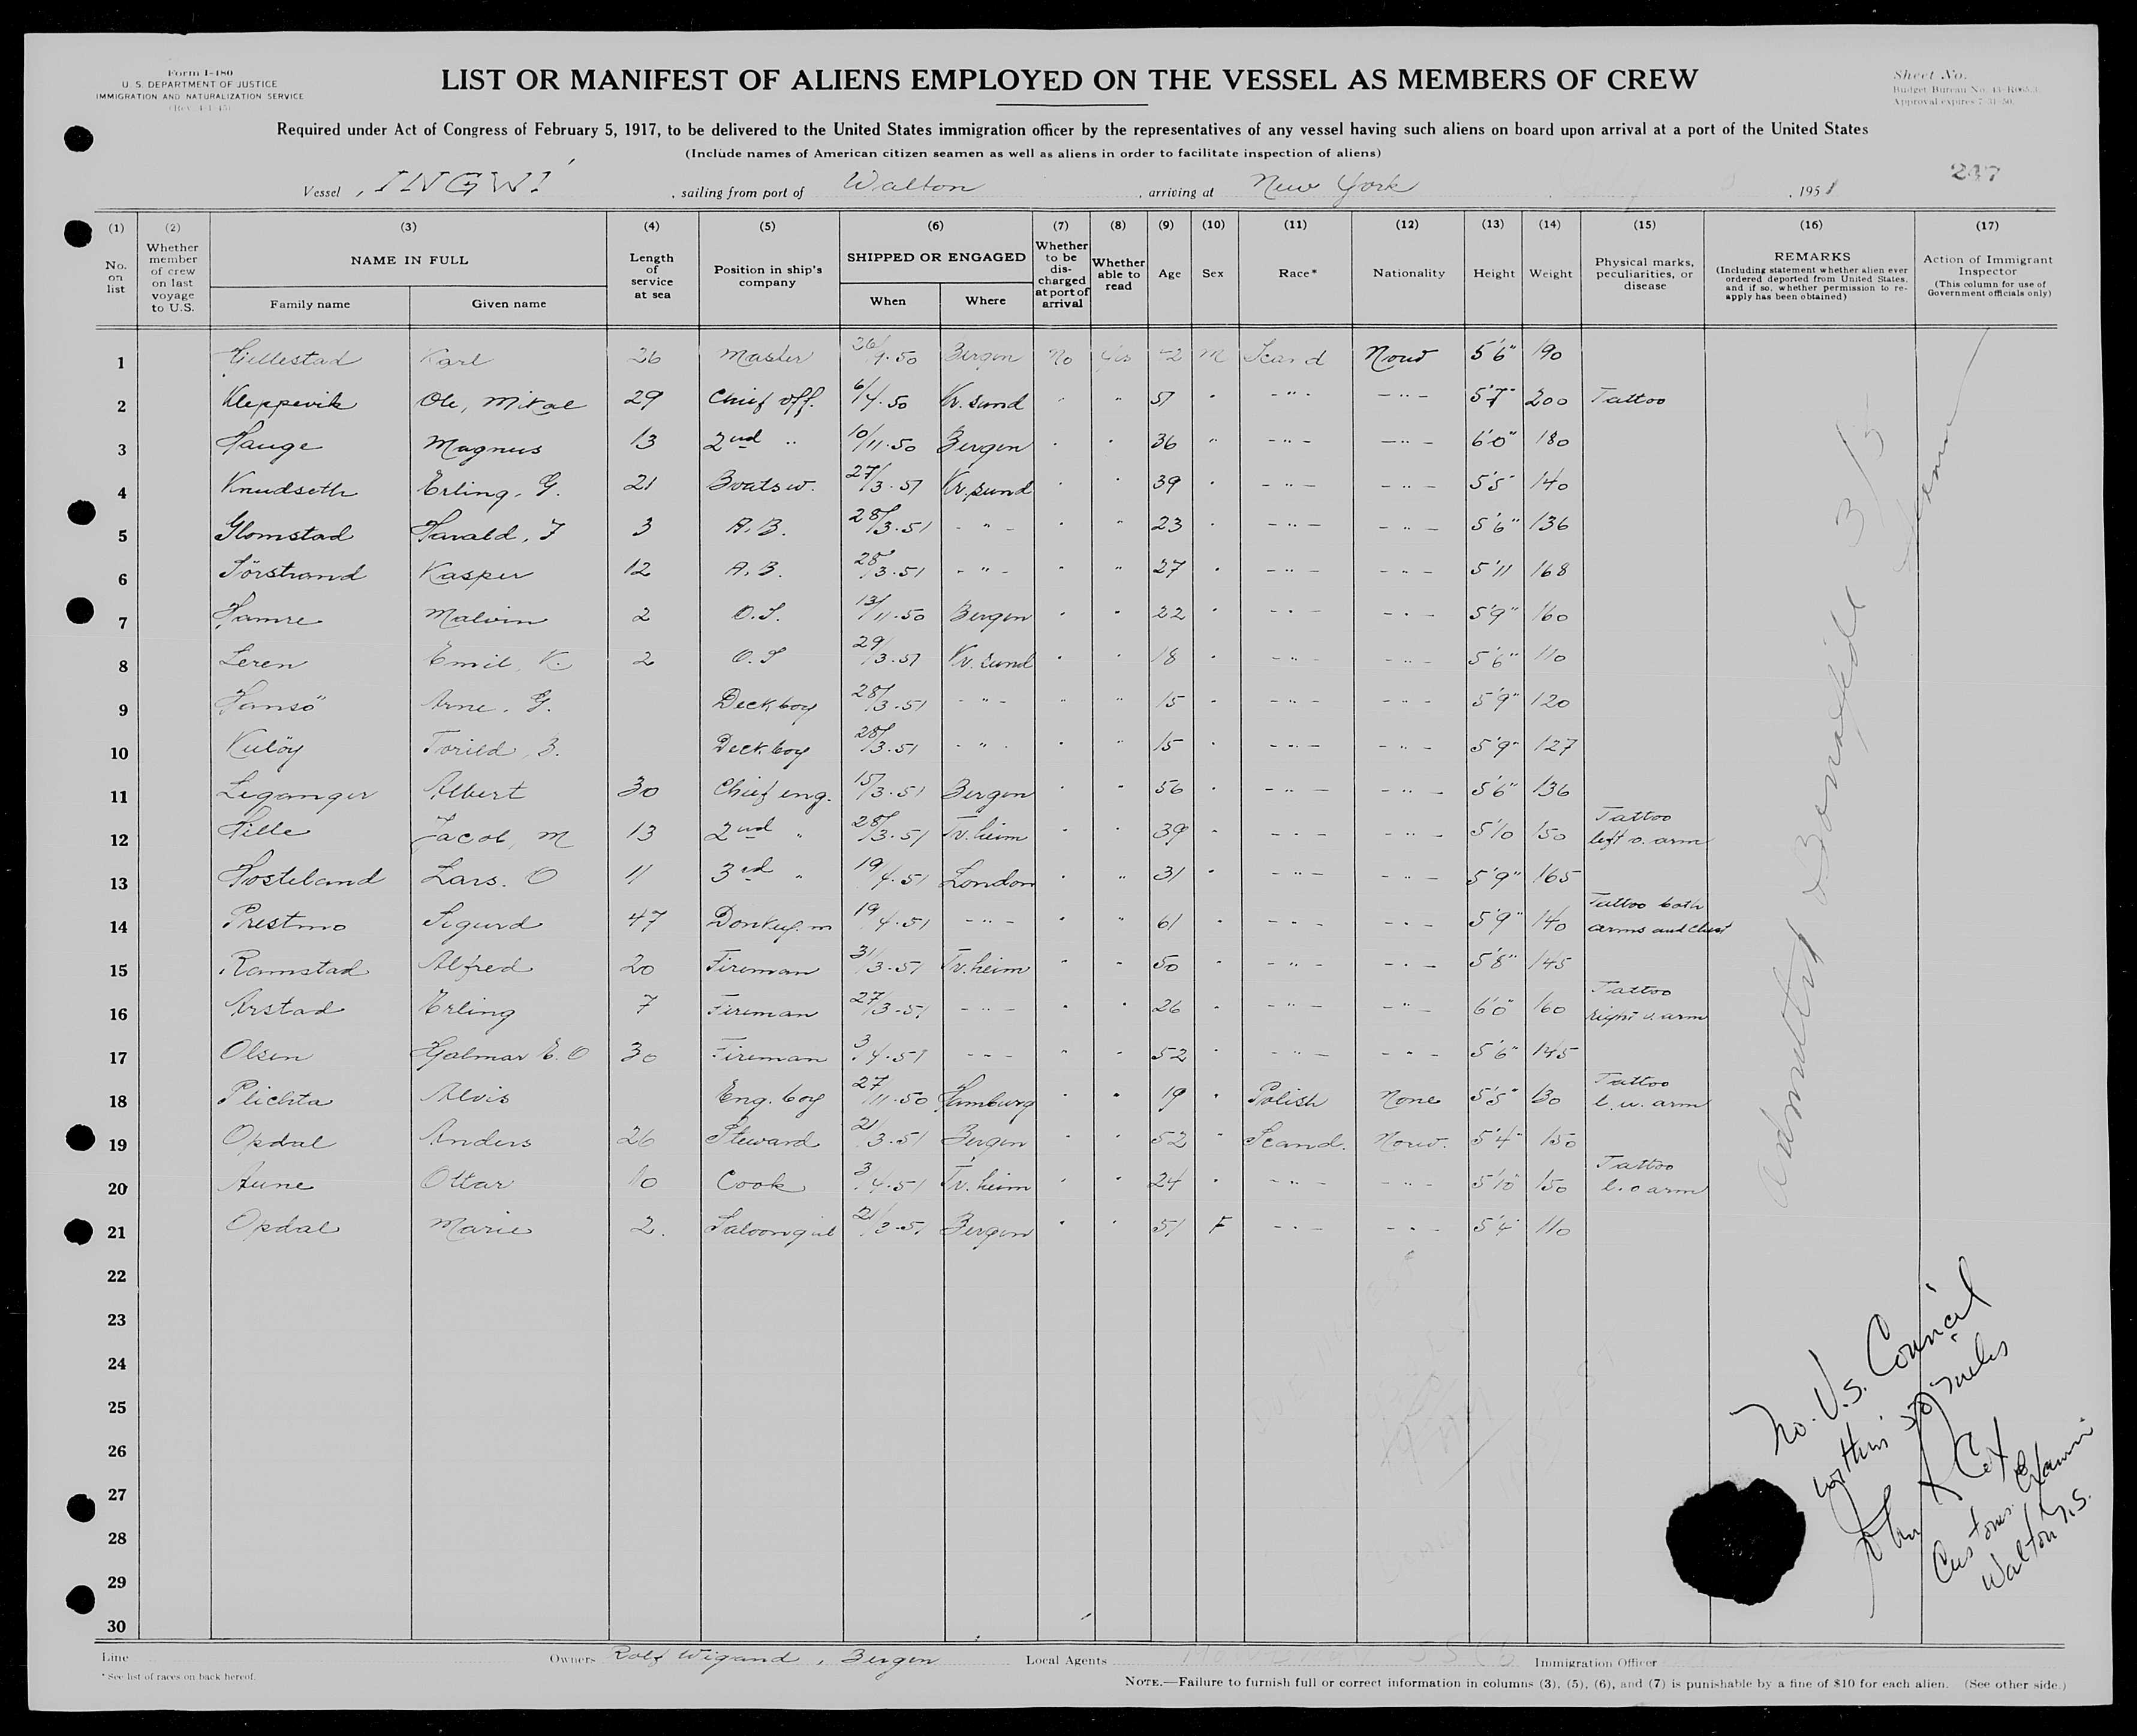 Form I-480
U. S. DEPARTMENT OF JUSTICE
IMMIGRATION AND NATURALIZATION SERVICE
(Rev. 4-1-45)
LIST OR MANIFEST OF ALIENS EMPLOYED ON THE VESSEL AS MEMBERS OF CREW
Sheet No.
Budget Bureau No. 43-R065.3.
Approval expires 7-31-50.
Required under Act of Congress of February 5, 1917, to be delivered to the United States immigration officer by the representatives of any vessel having such aliens on board upon arrival at a port of the United States
(Include names of American citizen seamen as well as aliens in order to facilitate inspection of aliens)
247
Vessel INGWI, sailing from port of Walton, arriving at New York, 1951
(1) No. on list
(2) Whether member of crew on last voyage to U.S.
(3) NAME IN FULL Family name Given name
(4) Length of service at sea
(5) Position in ship's company
(6) SHIPPED OR ENGAGED When Where
(7) Whether to be discharged at port of arrival
(8) Whether able to read
(9) Age
(10) Sex
(11) Race*
(12) Nationality
(13) Height
(14) Weight
(15) Physical marks, peculiarities, or disease
(16) REMARKS (Including statement whether alien ever ordered deported from United States, and if so, whether permission to re-apply has been obtained)
(17) Action of Immigrant Inspector (This column for use of Government officials only)
1 Gillestad Karl 26 Master 26/4.50 Bergen No yes M Scand Norw 5'6" 190
2 Kleppevik Ole, Mikal 29 Chief off. 6/4.50 Kr.sund " " 51 " - " - - " - 5'7" 200 Tattoo
3 Hauge Magnus 13 2nd " 10/11.50 Bergen " " 36 " - " - - " - 6'0" 180
4 Knudseth Erling, G. 21 Boatsw. 27/3.51 Kr.sund " " 39 " - " - - " - 5'5" 140
5 Glomstad Harald, F 3 A.B. 28/3.51 - " - " " 23 " - " - - " - 5'6" 136
6 Sörstrand Kasper 12 A.B. 28/3.51 - " - " " 27 " - " - - " - 5'11 168
7 Hamre Malvin 2 O.S. 13/11.50 Bergen " " 22 " - " - - " - 5'9" 160
8 Leren Emil, K. 2 O.S 29/3.51 Kr.sund " " 18 " - " - - " - 5'6" 110
9 Hansö Arne, G. Deckboy 28/3.51 - " - " " 15 " - " - - " - 5'9" 120
10 Kulöy Torild, B. Deckboy 28/3.51 - " - " " 15 " - " - - " - 5'9" 127
11 Leganger Albert 30 Chief eng. 15/3.51 Bergen " " 56 " - " - - " - 5'6" 136
12 Hille Jacob, M 13 2nd " 28/3.51 Tr.heim " " 39 " - " - - " - 5'10 150 Tattoo left o. arm
13 Hosteland Lars. O 11 3rd " 19/4.51 London " " 31 " - " - - " - 5'9" 165
14 Prestmo Sigurd 47 Donkey.m 19/4.51 - " - " " 61 " - " - - " - 5'9" 140 Tattoo both arms and chest
15 Ramstad Alfred 20 Fireman 31/3.51 Tr.heim " " 50 " - " - - " - 5'8" 145
16 Arstad Erling 7 Fireman 27/3.51 - " - " " 26 " - " - - " - 6'0" 160 Tattoo right u. arm
17 Olsen Hjalmar E. O 30 Fireman 3/4.51 - " - " " 52 " - " - - " - 5'6" 145
18 Plichta Alvis Eng. boy 27/11.50 Hamburg " " 19 " Polish None 5'5" 130 Tattoo l. u. arm
19 Opdal Anders 26 Steward 21/3.51 Bergen " " 52 " Scand. Norw. 5'4" 150
20 Aune Ottar 10 Cook 3/4.51 Tr.heim " " 24 " - " - - " - 5'10" 150 Tattoo l. o arm
21 Opdal Marie 2. Saloongirl 21/3.51 Bergen " " 51 F - " - - " - 5'4" 110
22
23
24
25
26
27
28
29
30
admitted Bonafide 3/5
No. U.S. Council
within 50 miles
John Cox
Customs Examin
Walton N.S.
Line
Owners Rolf Wigand, Bergen
Local Agents
Immigration Officer
*See list of races on back hereof.
NOTE.—Failure to furnish full or correct information in columns (3), (5), (6), and (7) is punishable by a fine of $10 for each alien. (See other side.)